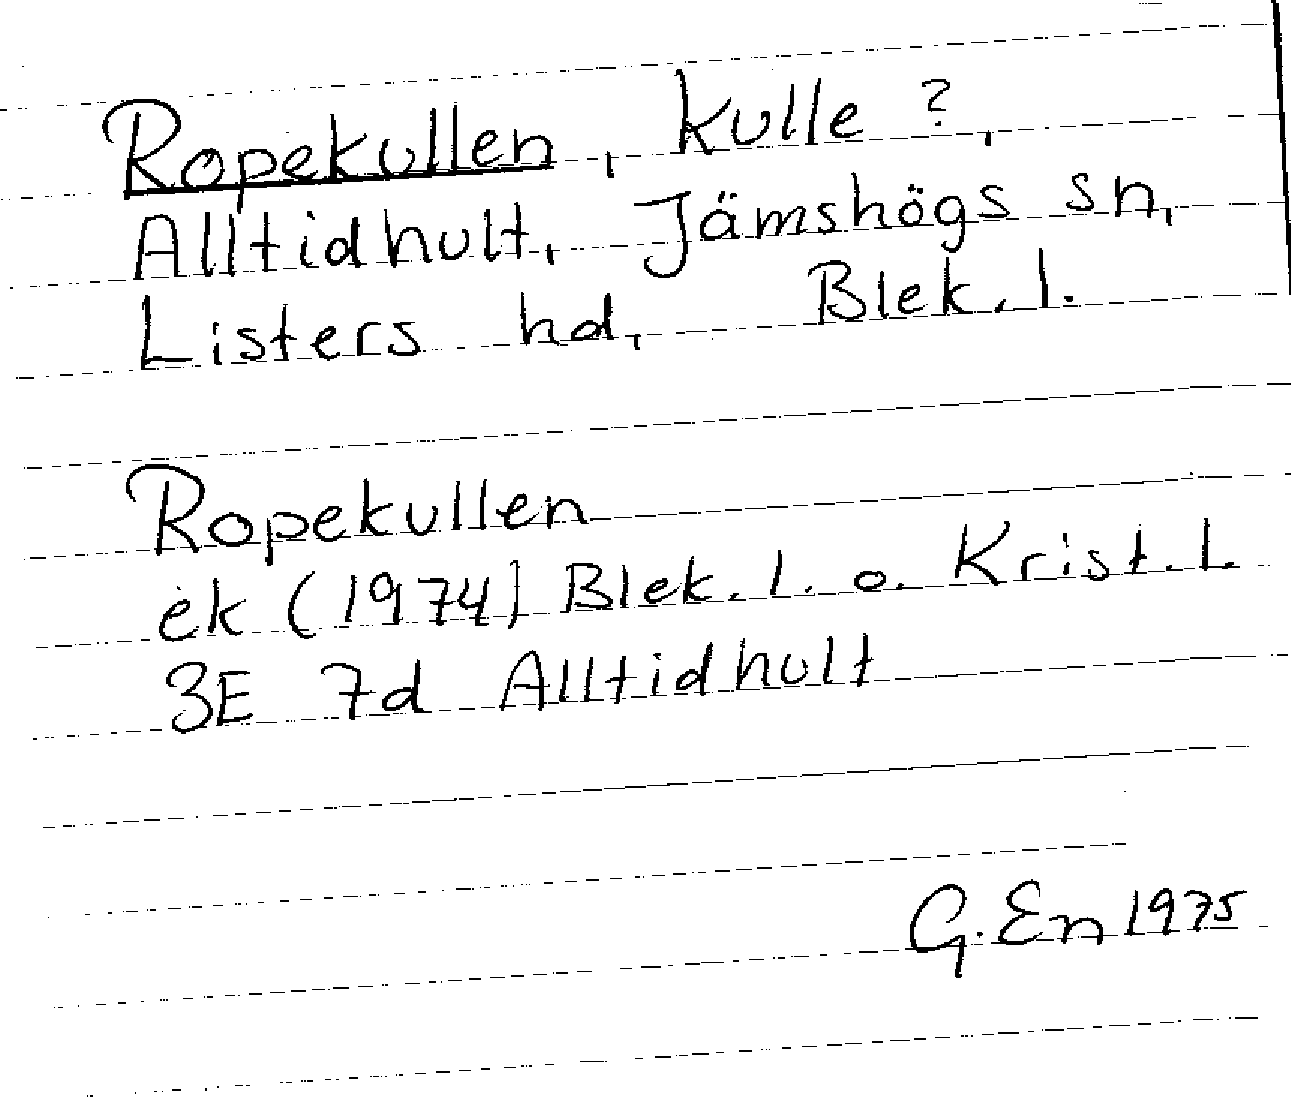 Ropekullen, kulle?,
Alltidhult, Jämshögs sn,
Listers hd, Blek. l.
Ropekullen
ek (1974) Blek. l. o. Krist. L
3E 7d Alltidhult
G. En 1975